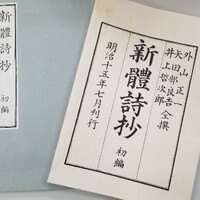 新體詩抄 初編
外山正一
矢田部良吉 仝撰
井上哲次郎
新體詩抄 初編
明治十五年七月刊行